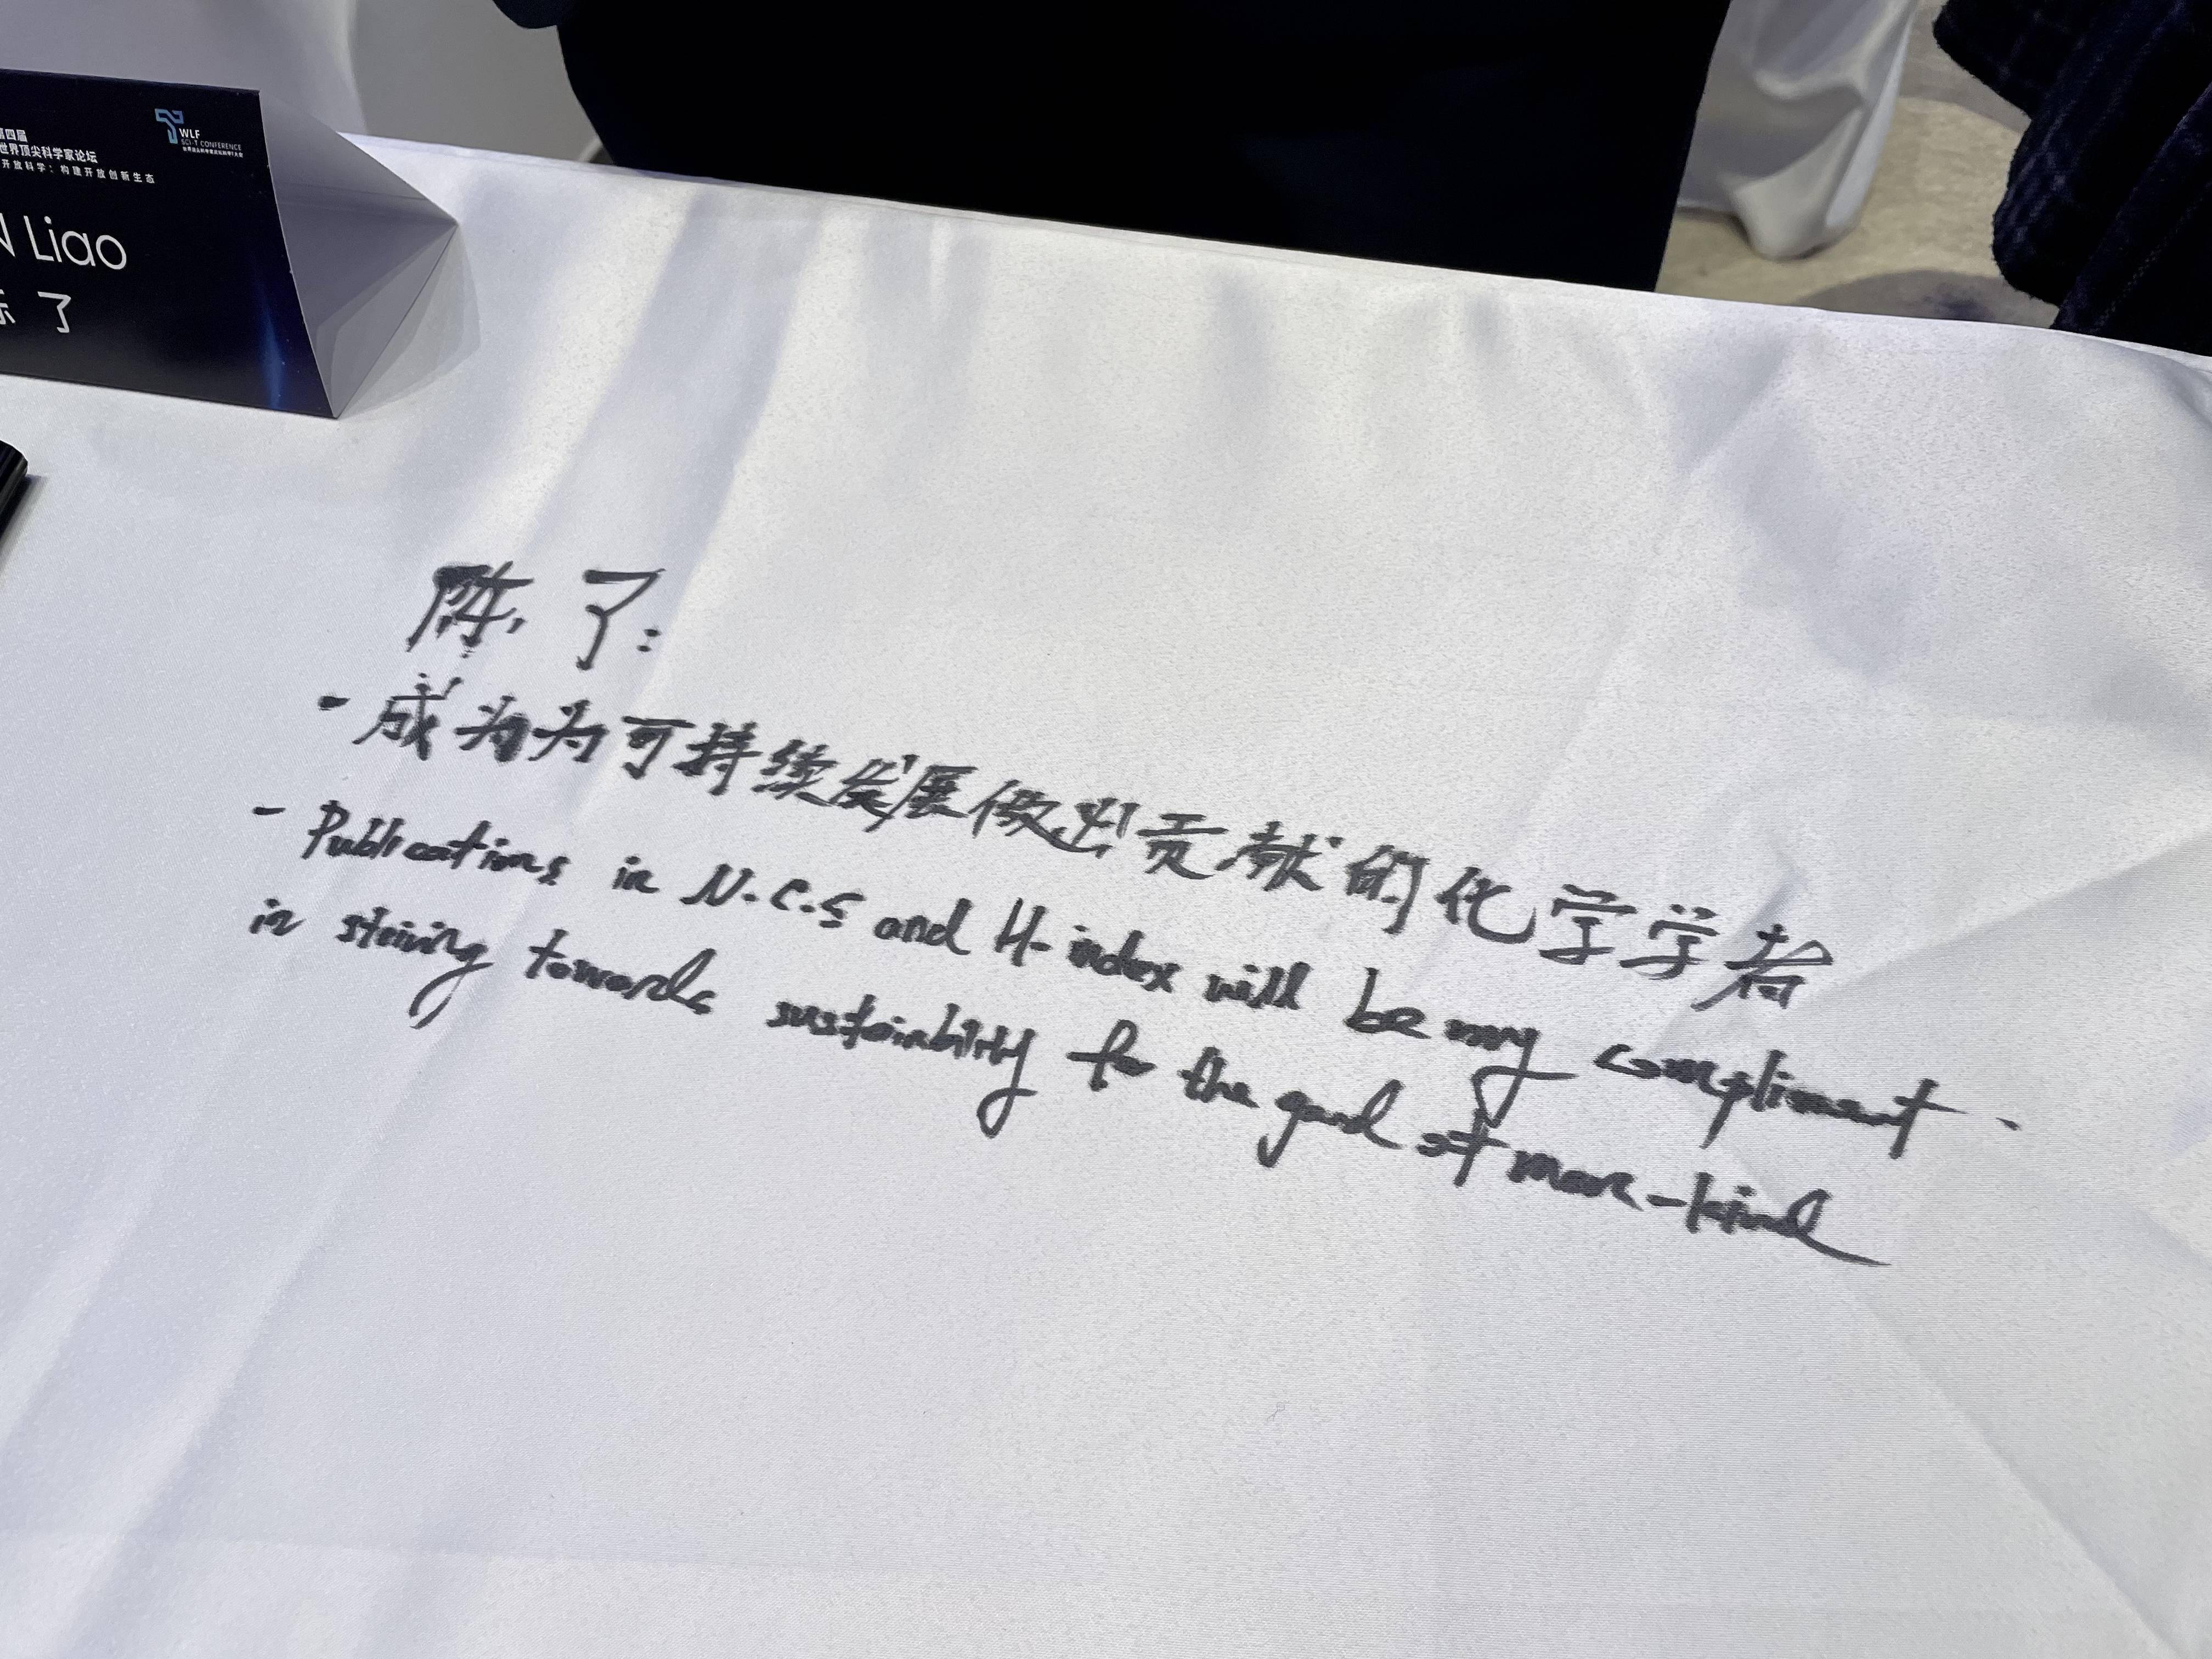 第四届
世界顶尖科学家论坛
开放科学：构建开放创新生态
WLF
SCI-T CONFERENCE
世界顶尖科学家论坛科学T大会
N Liao
陈 了
陈了:
- 成为为可持续发展做出贡献的化学学者
- Publications in N.C.S and H-index will be my compliment.
in striving towards sustainability for the good of man-kind